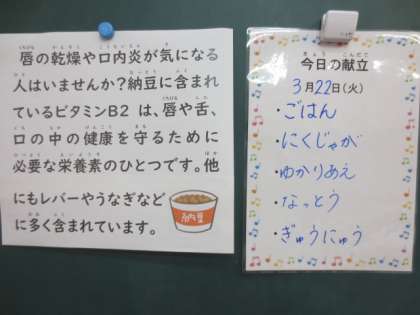 唇の乾燥や口内炎が気になる
人はいませんか？納豆に含まれ
ているビタミンB2 は、唇や舌、
口の中の健康を守るために
必要な栄養素のひとつです。他
にもレバーやうなぎなど
に多く含まれています。
納豆
今日の献立
3月22日(火)
・ごはん
・にくじゃが
・ゆかりあえ
・なっとう
・ぎゅうにゅう